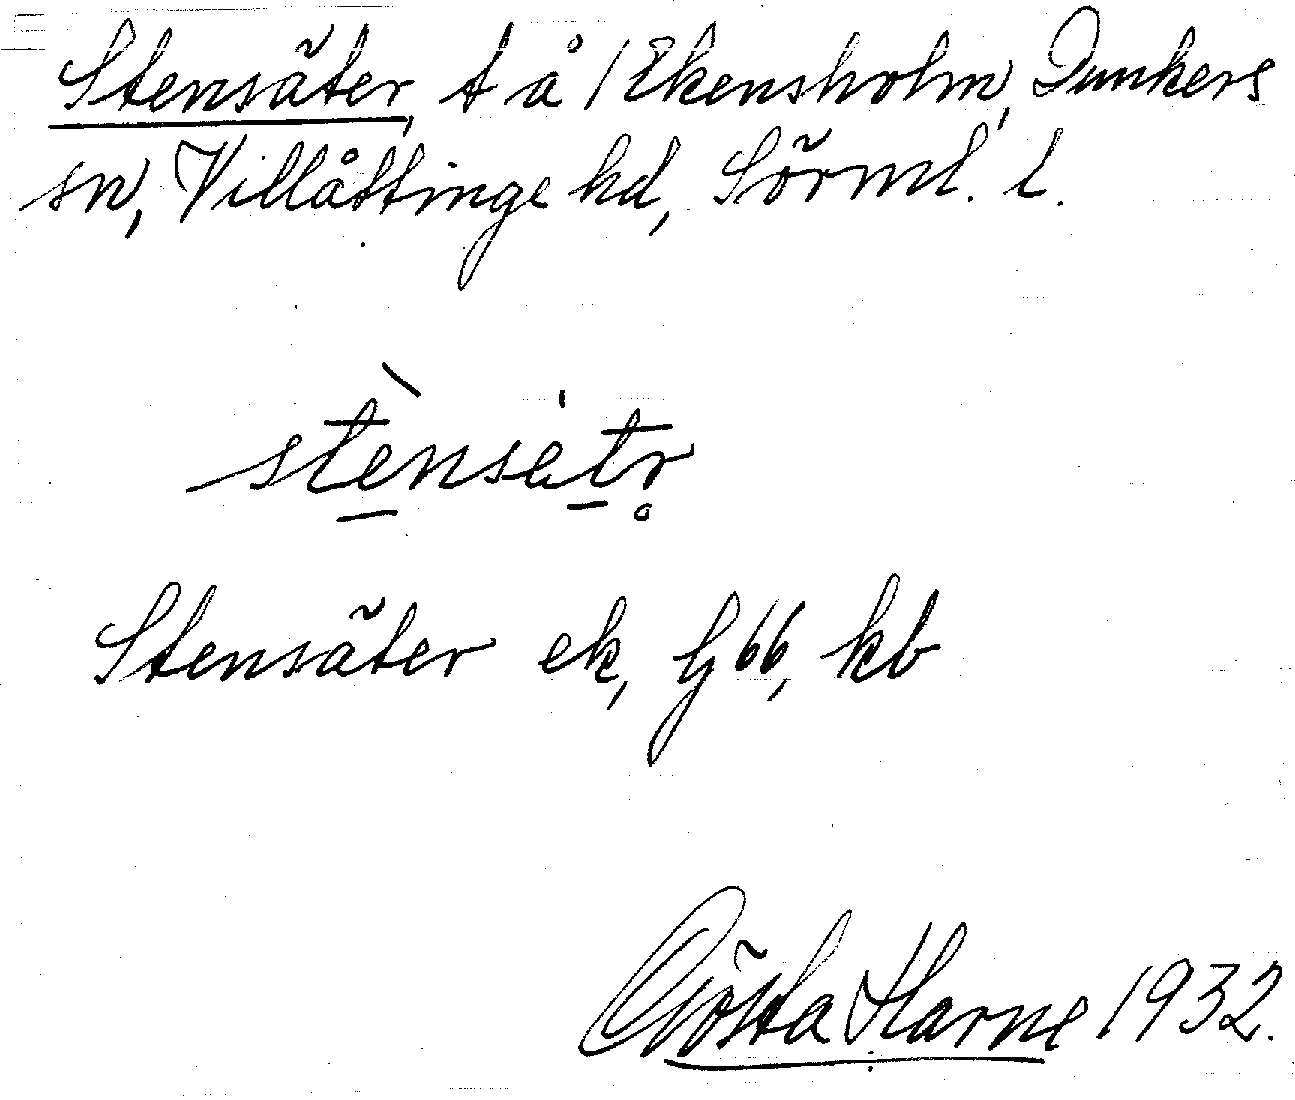 Stensäter, t å 1 Ekensholm, Dunkers
sn, Villåttinge hd, Sörml. l.
stènsètr̥
Stensäter ek, G66, kb
Gösta Harne 1932.